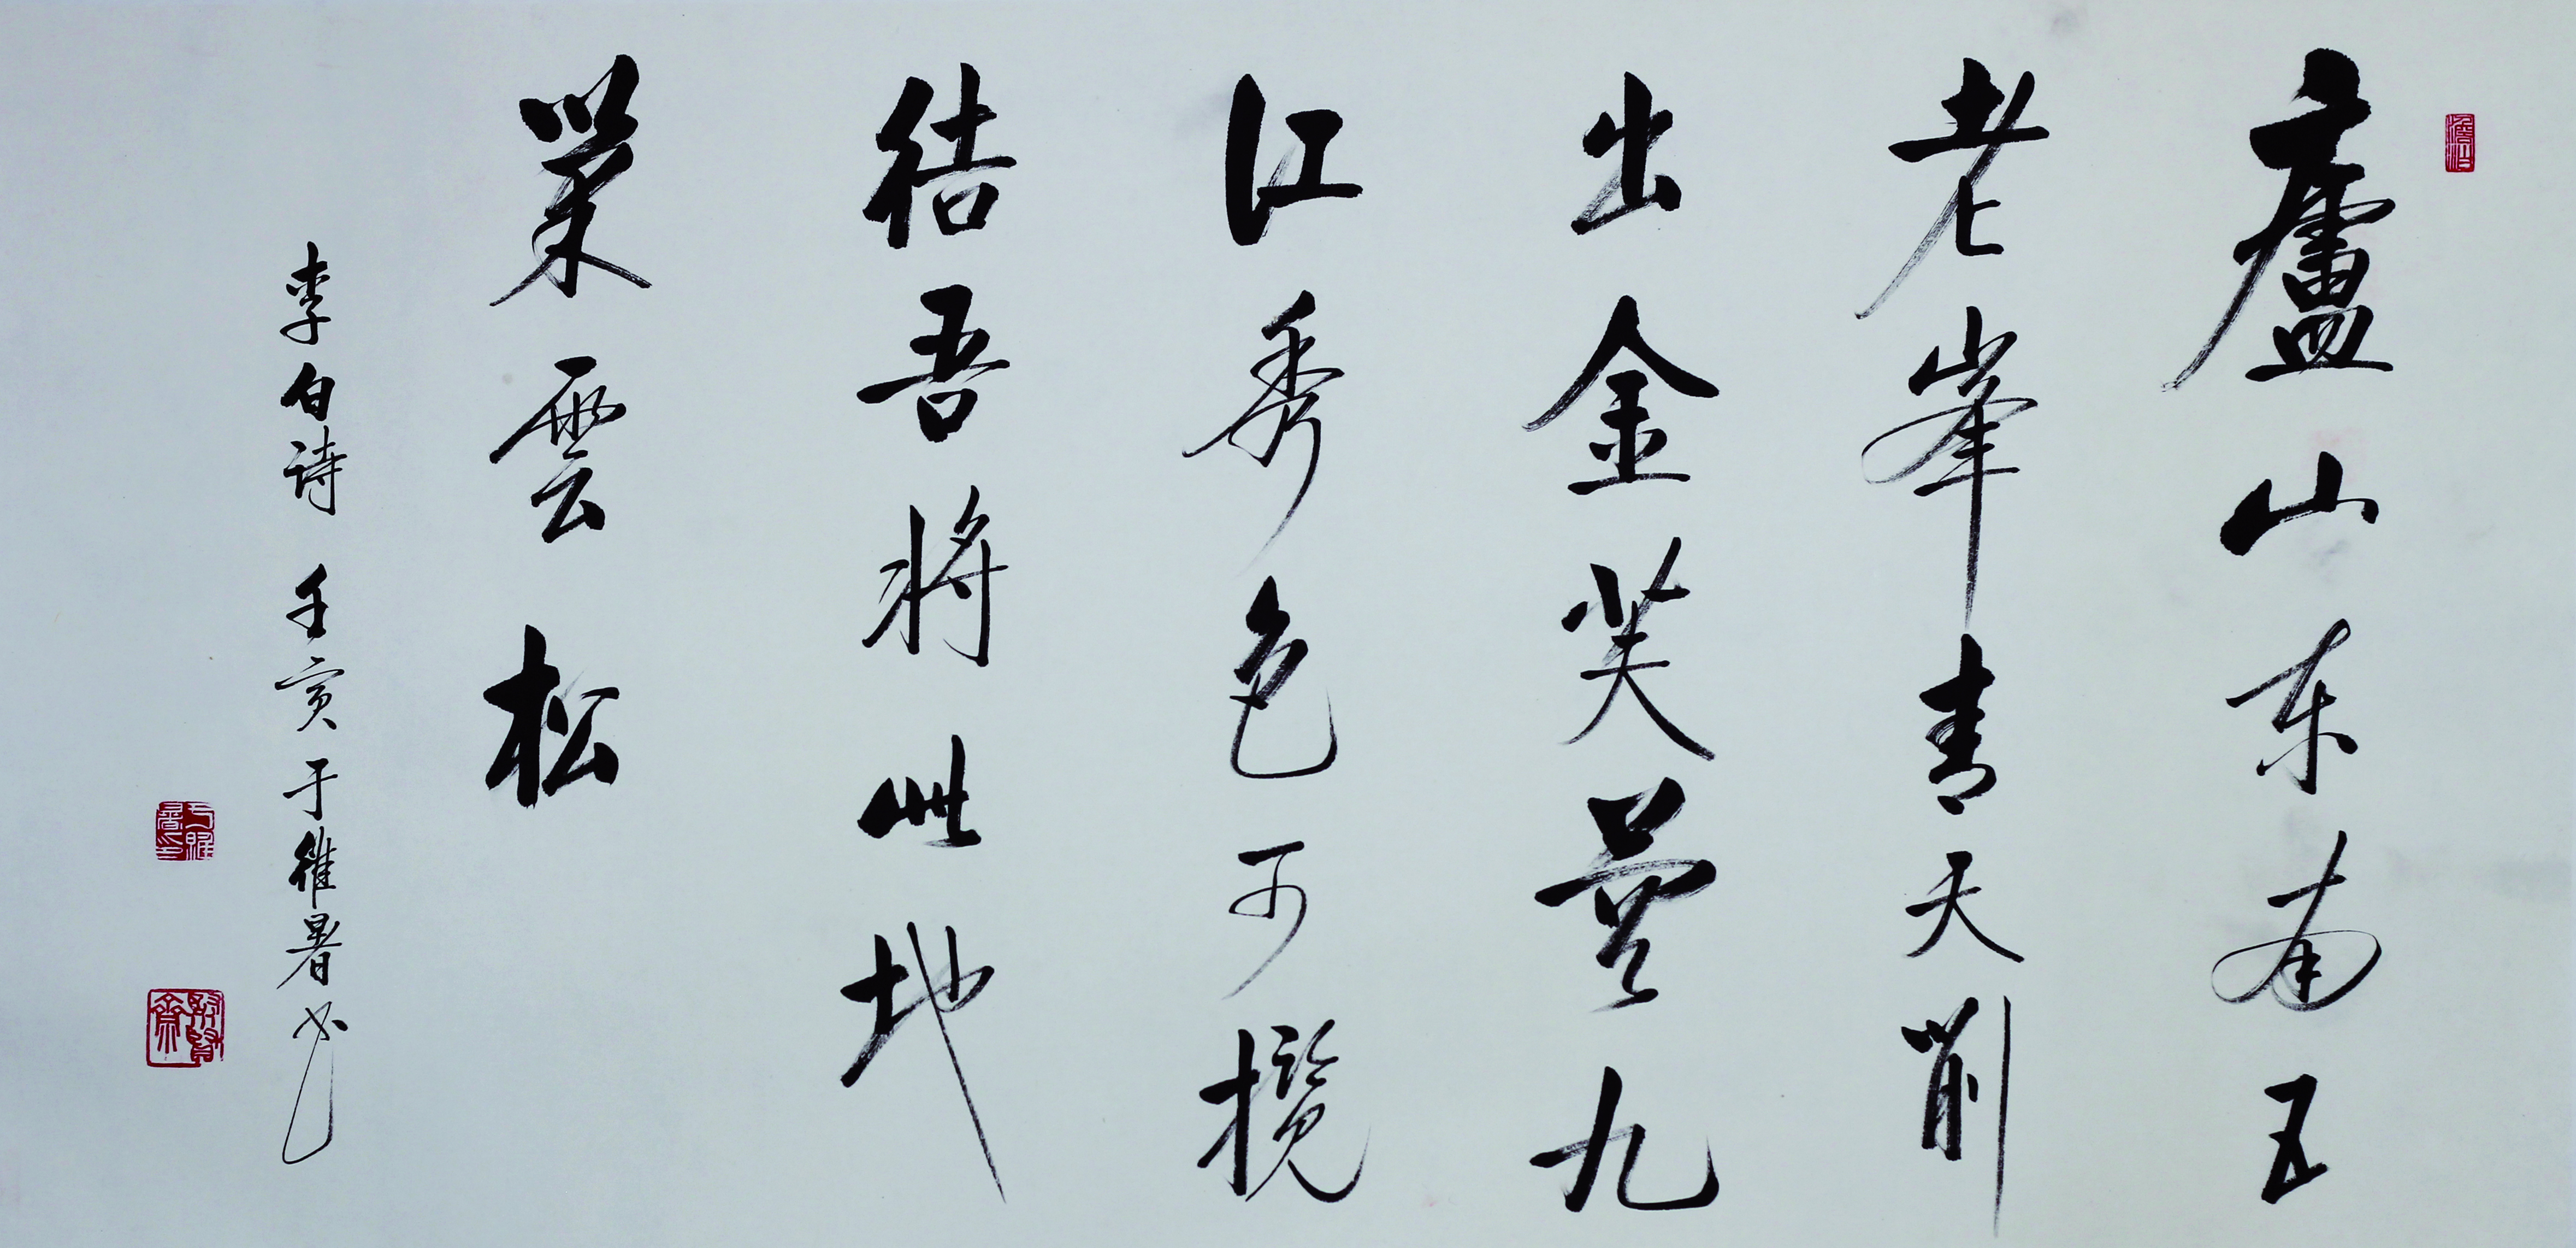 廬山东南五
老峯青天削
出金芙蓉九
江秀色可揽
结吾将此地
巢雲松
李白诗 壬寅于維暑书